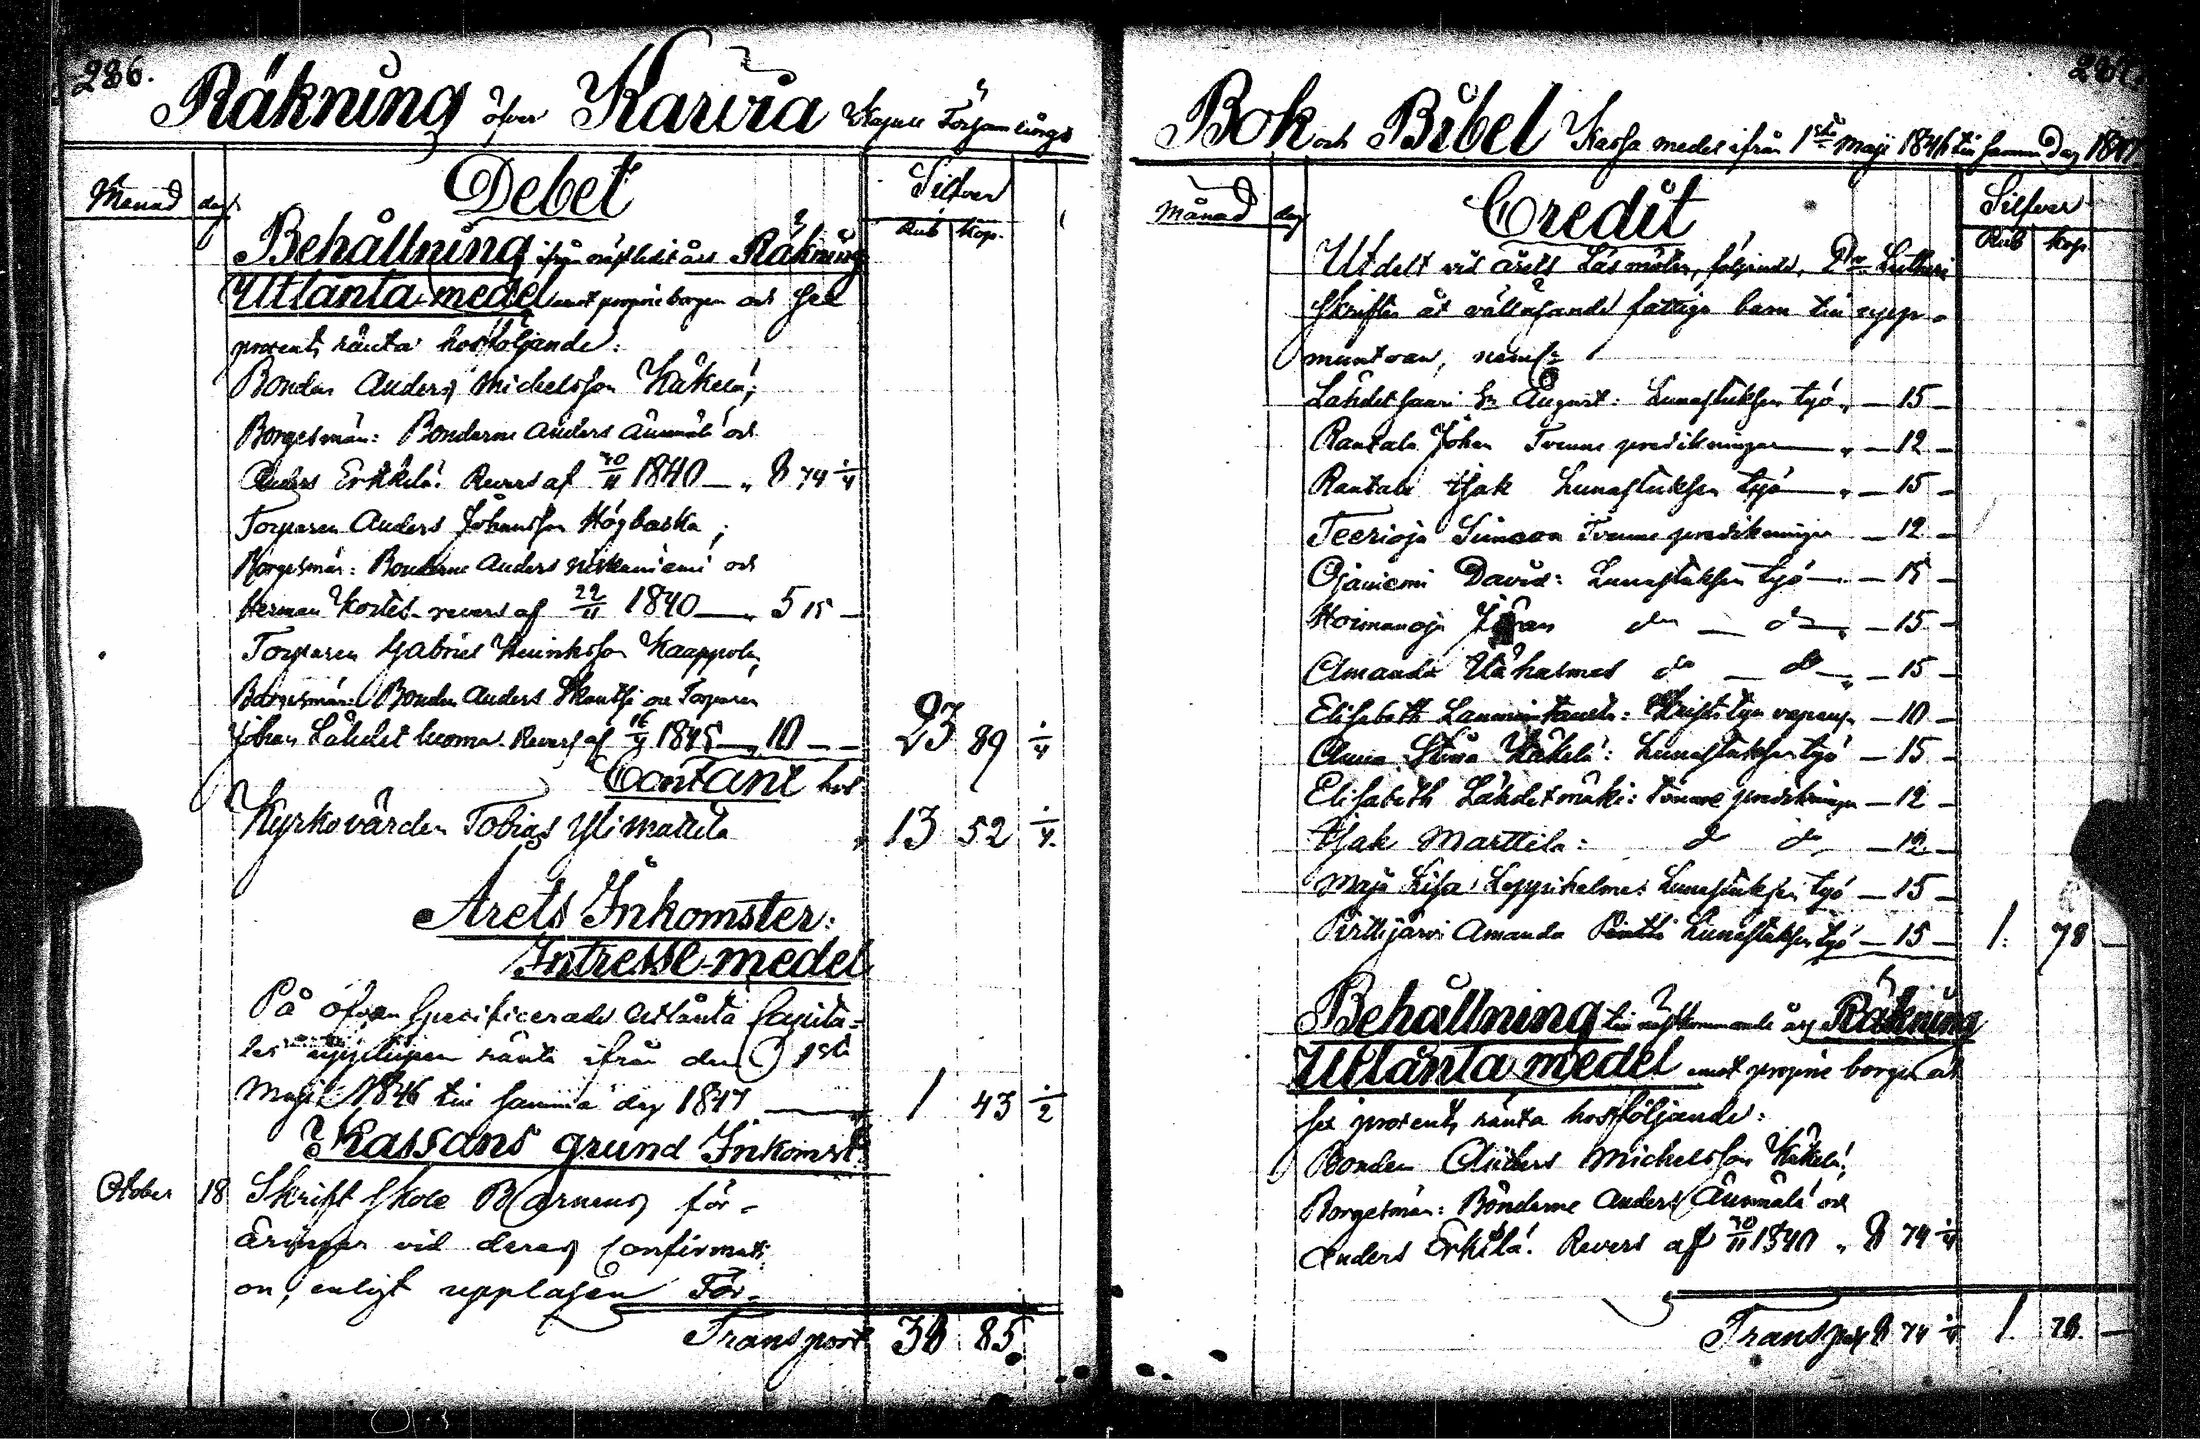 286.
Räkning öfver Karvia Kapell Församlings
Månad dag Debet Silfver
Rub Kop.
Behållning ifrån nästledit års Räkning
Utlånta medel emot proprie borgen och sex
procents ränta hos följande:
Bonden Anders Michelsson Käkelä;
Borgesmän: Bönderne Anders Äunmälä och
Anders Erkkilä. Revers af 30/11 1840 — „ 8 74 1/4
Torparen Anders Johansson Högbacka;
Borgesmän: Bönderne Anders Niskaniemi och
Herman Kortes. revers af 22/11 1840 — „ 5 15 —
Torparen Gabriel Henriksson Kaappola,
Borgesmän: Bonden Anders Skantsi och Torparen
Johan Lähdetluoma. Revers af 1845 — „ 10 — — 23 89 1/4
Contant hos
Kyrkovärden Tobias Ylimattila „ 13 52 1/4
Årets Inkomster:
Intresse-medel
På ofvan Specificerade utlånta Capita=
ler upplupen ränta ifrån den 1sta
Maji 1846 till samma dag 1847 — „ 1 43 1/2
Kassans grund Inkomst:
October 18 Skrift Skole Barnens för-
äringar vid deras Confirmati-
on, enligt upplasen För-
Transport 38 85
Bok och Bibel Kassa medel ifrån 1sta Maji 1846 till samma Dag 1847
Månad dag Credit Silfver
Rub Kop
Utdelt vid årets Läsmöten, följande, Dr Lutheri
Skrifter åt välläsande fattiga barn till upp-
muntran, neml:
Lähdetsaari August: Lunastuksen työ „ — 15 —
Rantala Johan Tvenne predikningar — „ — 12 —
Rantala Isak Lunastuksen työ — „ — 15 —
Teerioja Simeon Tvenne predikningar — 12 —
Ojaniemi David: Lunastuksen työ — „ — 15 —
Hoimanoja Johan do — do — „ — 15 —
Amanda do — do — „ — 15 —
Elisabeth — 10 —
Anna Stina Käkelä: Lunastuksen työ — 15 —
Elisabeth Lähdetmäki: tvenne predikningar — 12 —
Isak Marttila: do do — 12 —
Maja Lisa Leppihalme: Lunastuksen työ — 15 —
Pirttijärvi Amanda Lunastuksen työ — 15 — 1. 78 —
Behållning till nästkommande års Räkning
Utlånta medel emot proprie borgen och
sex procents ränta hos följande:
Bonden Anders Michelsson Käkelä;
Borgesmän: Bönderne Anders Äunmälä och
Anders Erkkilä. Revers af 30/11 1840 „ 8 74 1/4
Transport 8 74 1/4 1. 78. —